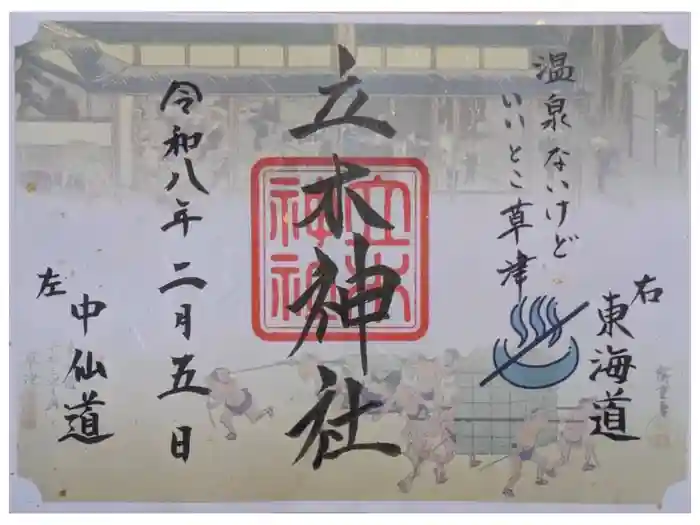 温泉ないけど
いいとこ草津
右
東海道
立木神社
立木
神社
令和八年二月五日
左
中仙道